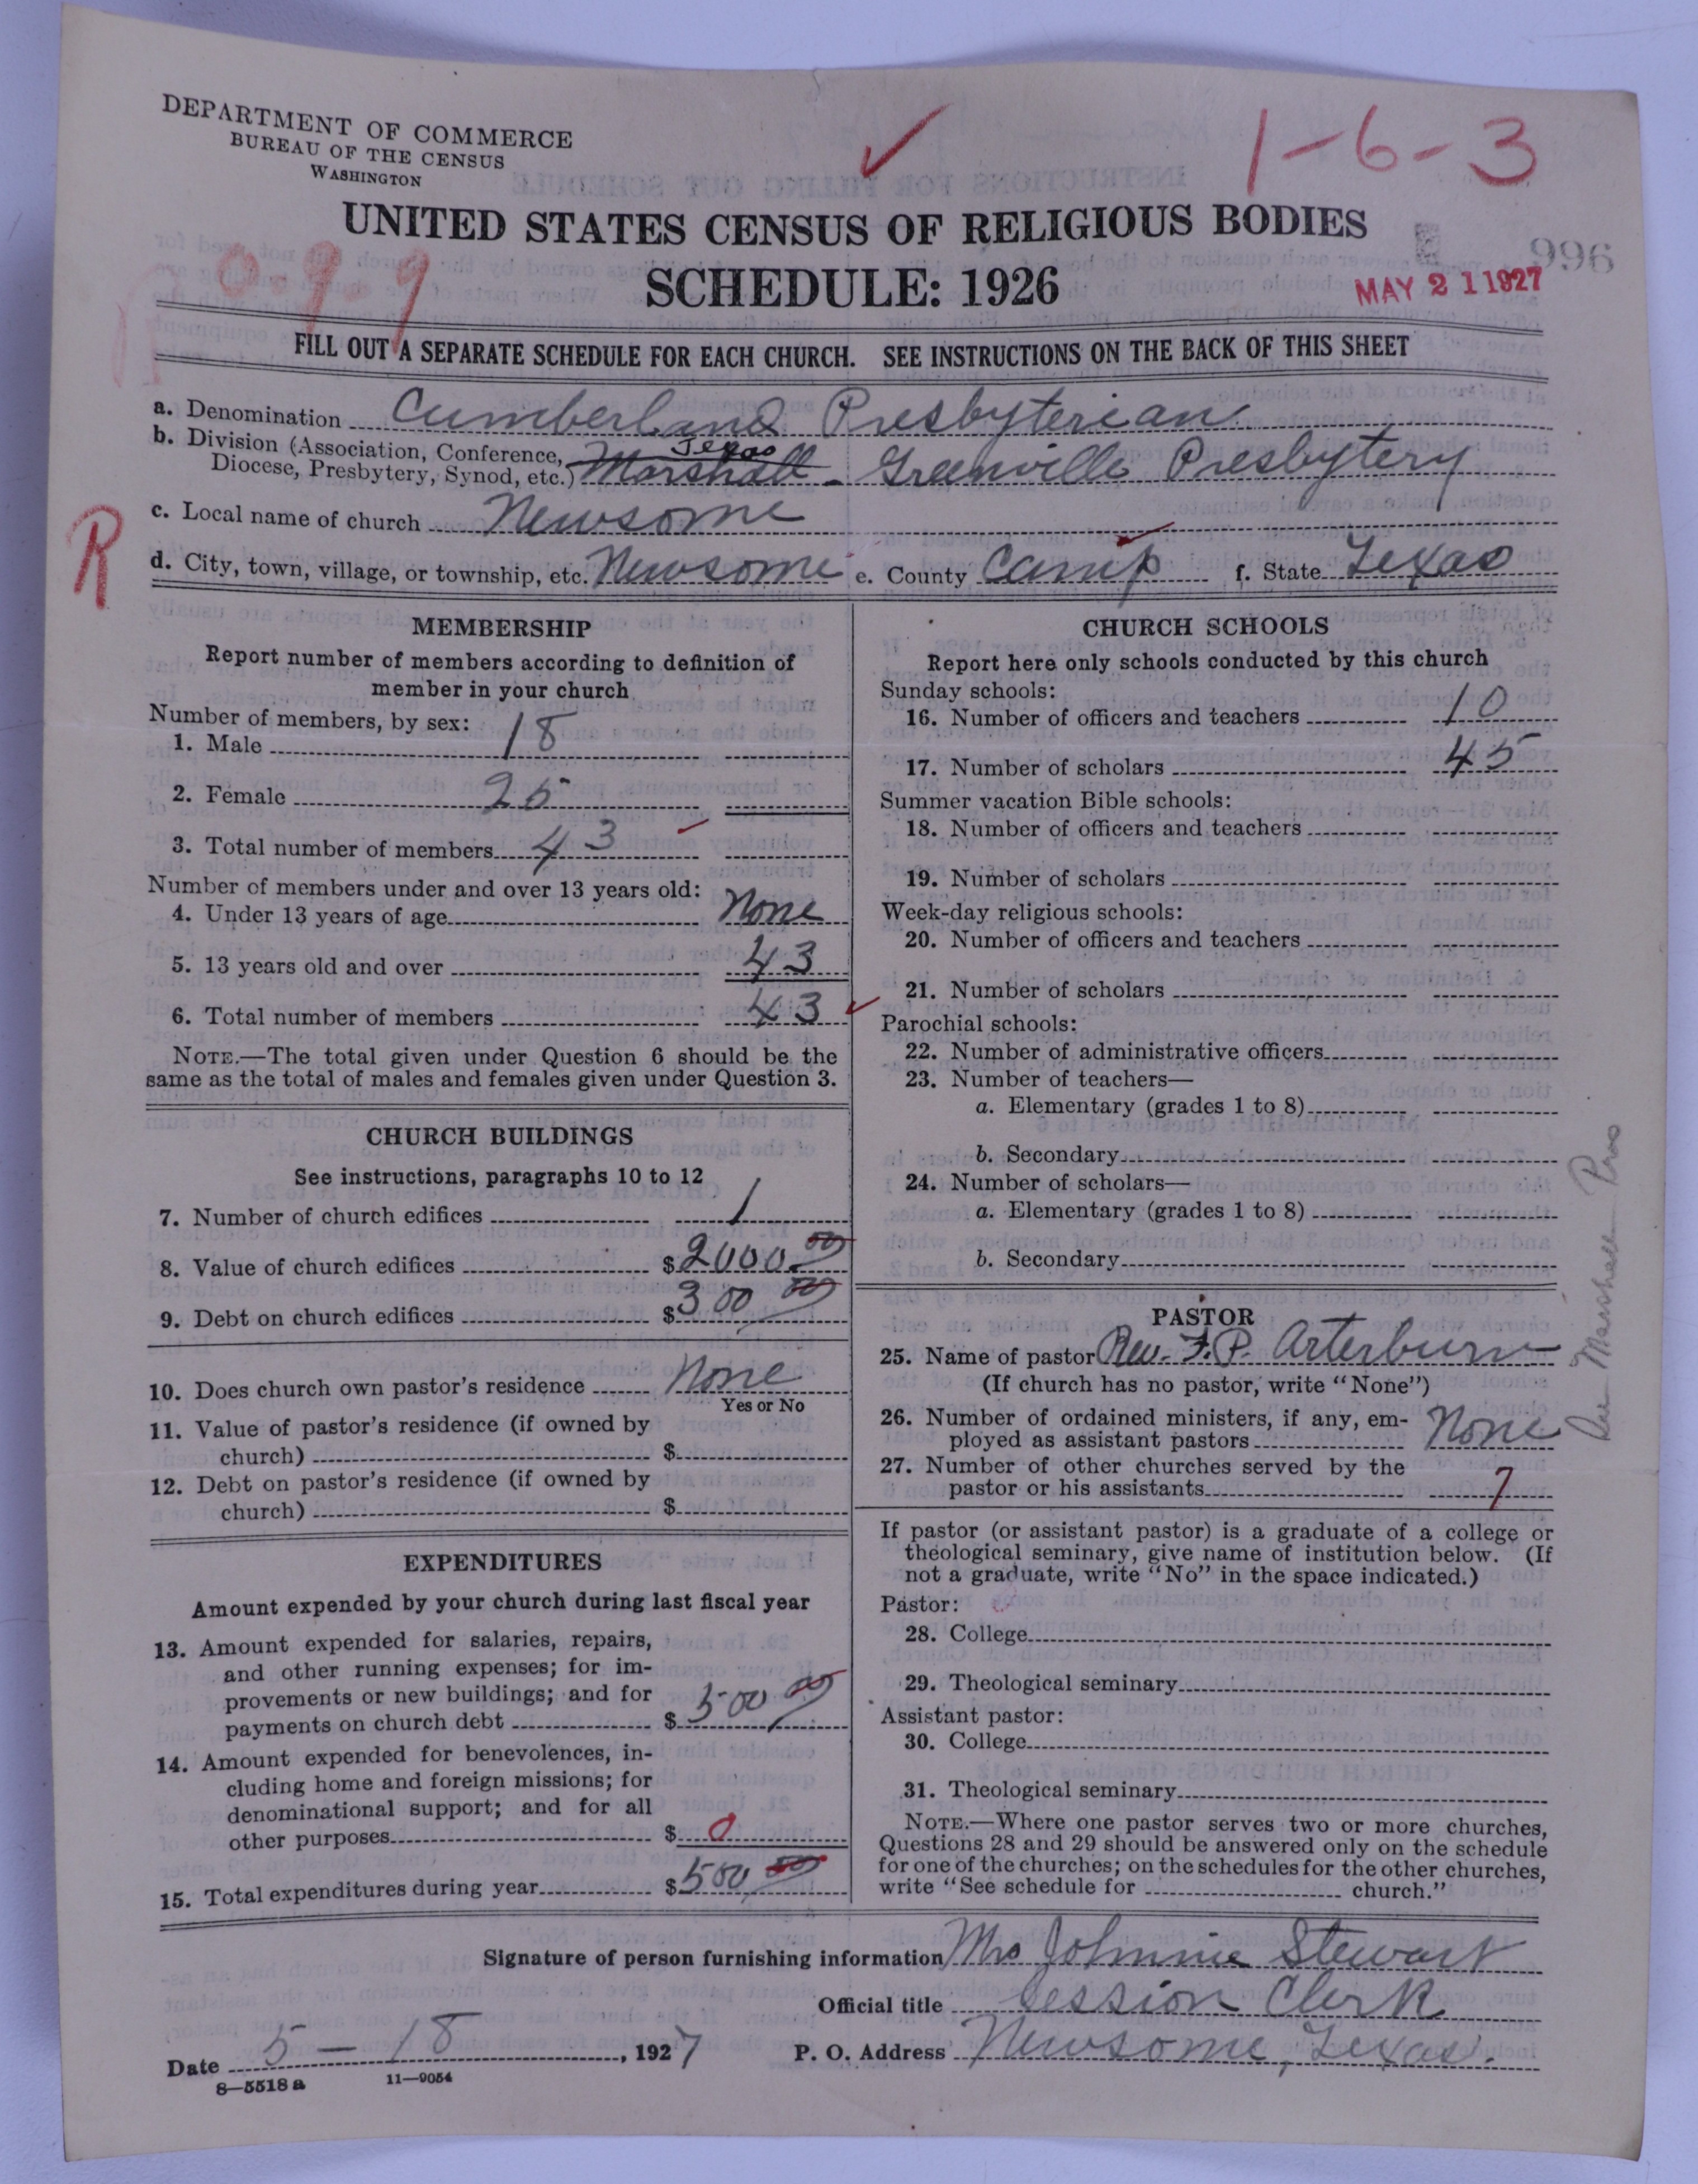 DEPARTMENT OF COMMERCE
BUREAU OF THE CENSUS
WASHINGTON
1-6-3
UNITED STATES CENSUS OF RELIGIOUS BODIES
SCHEDULE: 1926
996
MAY 21 1927
9-9
FILL OUT A SEPARATE SCHEDULE FOR EACH CHURCH. SEE INSTRUCTIONS ON THE BACK OF THIS SHEET
a. Denomination Cumberland Presbyterian
b. Division (Association, Conference, Texas
Diocese, Presbytery, Synod, etc.) Marshall - Greenville Presbytery
c. Local name of church Newsome
R
d. City, town, village, or township, etc. Newsome e. County Camp f. State Texas
MEMBERSHIP
Report number of members according to definition of
member in your church
Number of members, by sex:
1. Male 18
2. Female 25
3. Total number of members 43
Number of members under and over 13 years old:
4. Under 13 years of age None
5. 13 years old and over 43
6. Total number of members 43
NOTE.—The total given under Question 6 should be the
same as the total of males and females given under Question 3.
CHURCH BUILDINGS
See instructions, paragraphs 10 to 12
7. Number of church edifices 1
8. Value of church edifices $2000.00
9. Debt on church edifices $300 00
10. Does church own pastor's residence None
Yes or No
11. Value of pastor's residence (if owned by
church) $
12. Debt on pastor's residence (if owned by
church) $
EXPENDITURES
Amount expended by your church during last fiscal year
13. Amount expended for salaries, repairs,
and other running expenses; for im-
provements or new buildings; and for
payments on church debt $500 00
14. Amount expended for benevolences, in-
cluding home and foreign missions; for
denominational support; and for all
other purposes $0
15. Total expenditures during year $500 00
CHURCH SCHOOLS
Report here only schools conducted by this church
Sunday schools:
16. Number of officers and teachers 10
17. Number of scholars 45
Summer vacation Bible schools:
18. Number of officers and teachers
19. Number of scholars
Week-day religious schools:
20. Number of officers and teachers
21. Number of scholars
Parochial schools:
22. Number of administrative officers
23. Number of teachers—
a. Elementary (grades 1 to 8)
b. Secondary
24. Number of scholars—
a. Elementary (grades 1 to 8)
b. Secondary
PASTOR
25. Name of pastor Rev. F. P. Arterburn
(If church has no pastor, write "None")
26. Number of ordained ministers, if any, em-
ployed as assistant pastors None
27. Number of other churches served by the
pastor or his assistants 7
If pastor (or assistant pastor) is a graduate of a college or
theological seminary, give name of institution below. (If
not a graduate, write "No" in the space indicated.)
Pastor:
28. College
29. Theological seminary
Assistant pastor:
30. College
31. Theological seminary
NOTE.—Where one pastor serves two or more churches,
Questions 28 and 29 should be answered only on the schedule
for one of the churches; on the schedules for the other churches,
write "See schedule for church."
Marshall Pres
Signature of person furnishing information Mrs Johnnie Stewart
Official title Session Clerk
Date 5-18, 1927 P. O. Address Newsome, Texas.
8—5518 a 11—9054